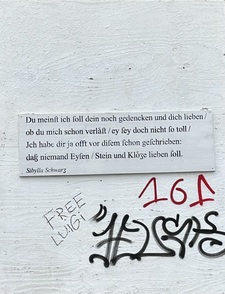 Du meinſt ich ſoll dein noch gedencken und dich lieben /
ob du mich schon verläſt / ey ſey doch nicht ſo toll /
Jch habe dir ja offt vor diſem ſchon geſchrieben:
daß niemand Eyſen / Stein und Klöze lieben ſoll.
Sibylla Schwarz
161
FREE
LUIGI